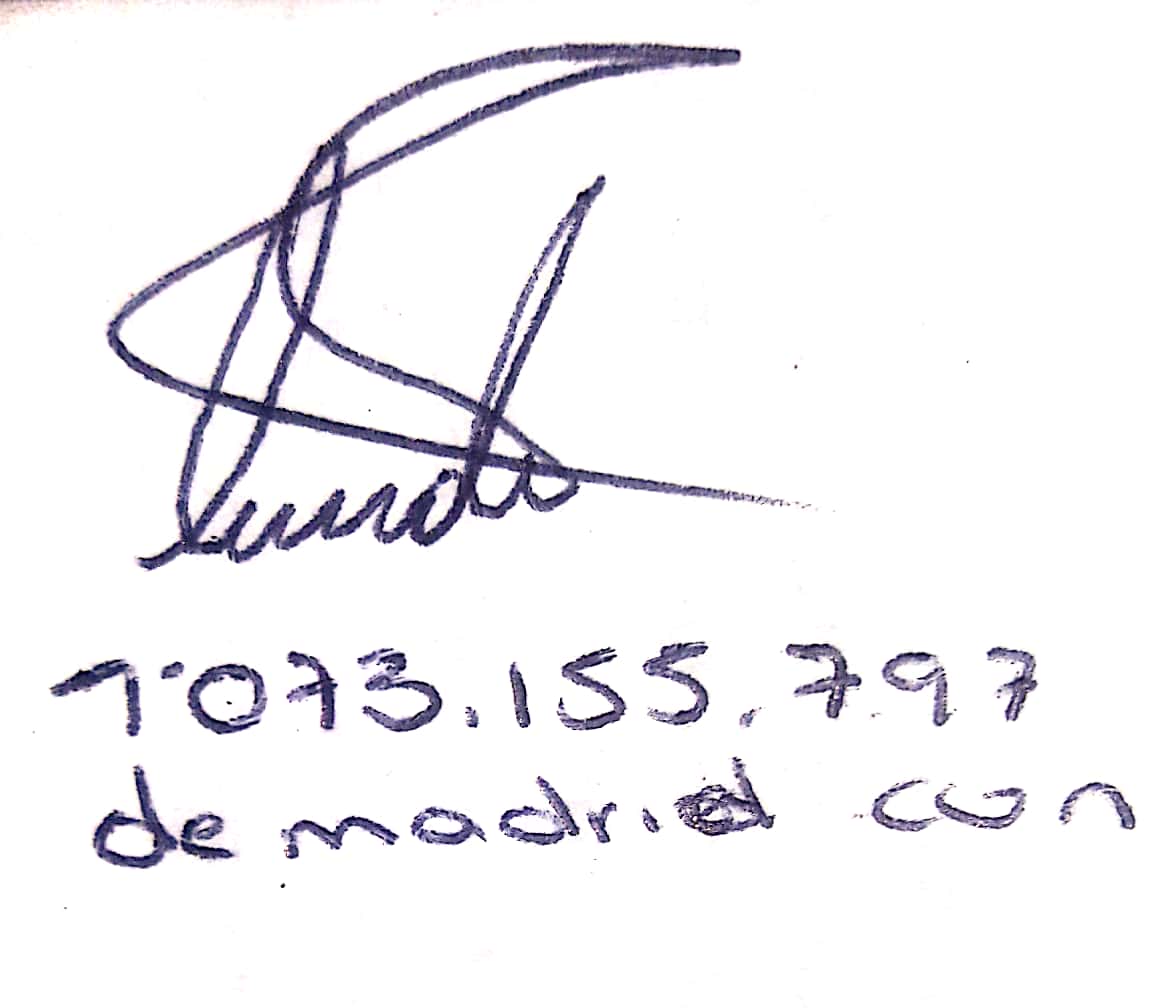 1'073.155.797
de madrid cun